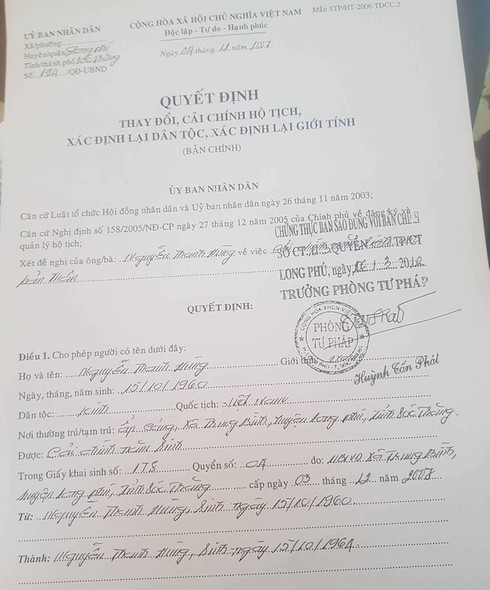 Mẫu STP/HT-2006-TDCC.2
CỘNG HÒA XÃ HỘI CHỦ NGHĨA VIỆT NAM
Độc lập - Tự do - Hạnh phúc
ỦY BAN NHÂN DÂN
Xã/phường
Huyện/quận Long Phú
Tỉnh/thành phố Sóc Trăng
Số: /QĐ-UBND
Ngày tháng năm
QUYẾT ĐỊNH
THAY ĐỔI, CẢI CHÍNH HỘ TỊCH,
XÁC ĐỊNH LẠI DÂN TỘC, XÁC ĐỊNH LẠI GIỚI TÍNH
(BẢN CHÍNH)
ỦY BAN NHÂN DÂN
Căn cứ Luật tổ chức Hội đồng nhân dân và Uỷ ban nhân dân ngày 26 tháng 11 năm 2003;
Căn cứ Nghị định số 158/2005/NĐ-CP ngày 27 tháng 12 năm 2005 của Chính phủ về đăng ký và
quản lý hộ tịch;
CHỨNG THỰC BẢN SAO ĐÚNG VỚI BẢN CHÍNH
Xét đề nghị của ông/bà: Nguyễn Thanh Hùng về việc
SỐ CT QUYỂN TP/CT
bản thân
LONG PHÚ, ngày
TRƯỞNG PHÒNG TƯ PHÁP
QUYẾT ĐỊNH:
PHÒNG
TƯ PHÁP
Huỳnh Tấn Phát
Điều 1. Cho phép người có tên dưới đây:
Họ và tên: Nguyễn Thanh Hùng Giới tính:
Ngày, tháng, năm sinh: 15/10/1960
Dân tộc: Kinh Quốc tịch: Việt Nam
Nơi thường trú/tạm trú: Ấp xã Trung Bình, huyện Long Phú, tỉnh Sóc Trăng
Được: Cải chính năm sinh
Trong Giấy khai sinh số: 178 Quyển số: 01 do: UBND xã Trung Bình,
huyện Long Phú, tỉnh Sóc Trăng cấp ngày 03 tháng 12 năm 2008
Từ: Nguyễn Thanh Hùng, sinh ngày 15/10/1960
Thành: Nguyễn Thanh Hùng, sinh ngày 15/10/1964